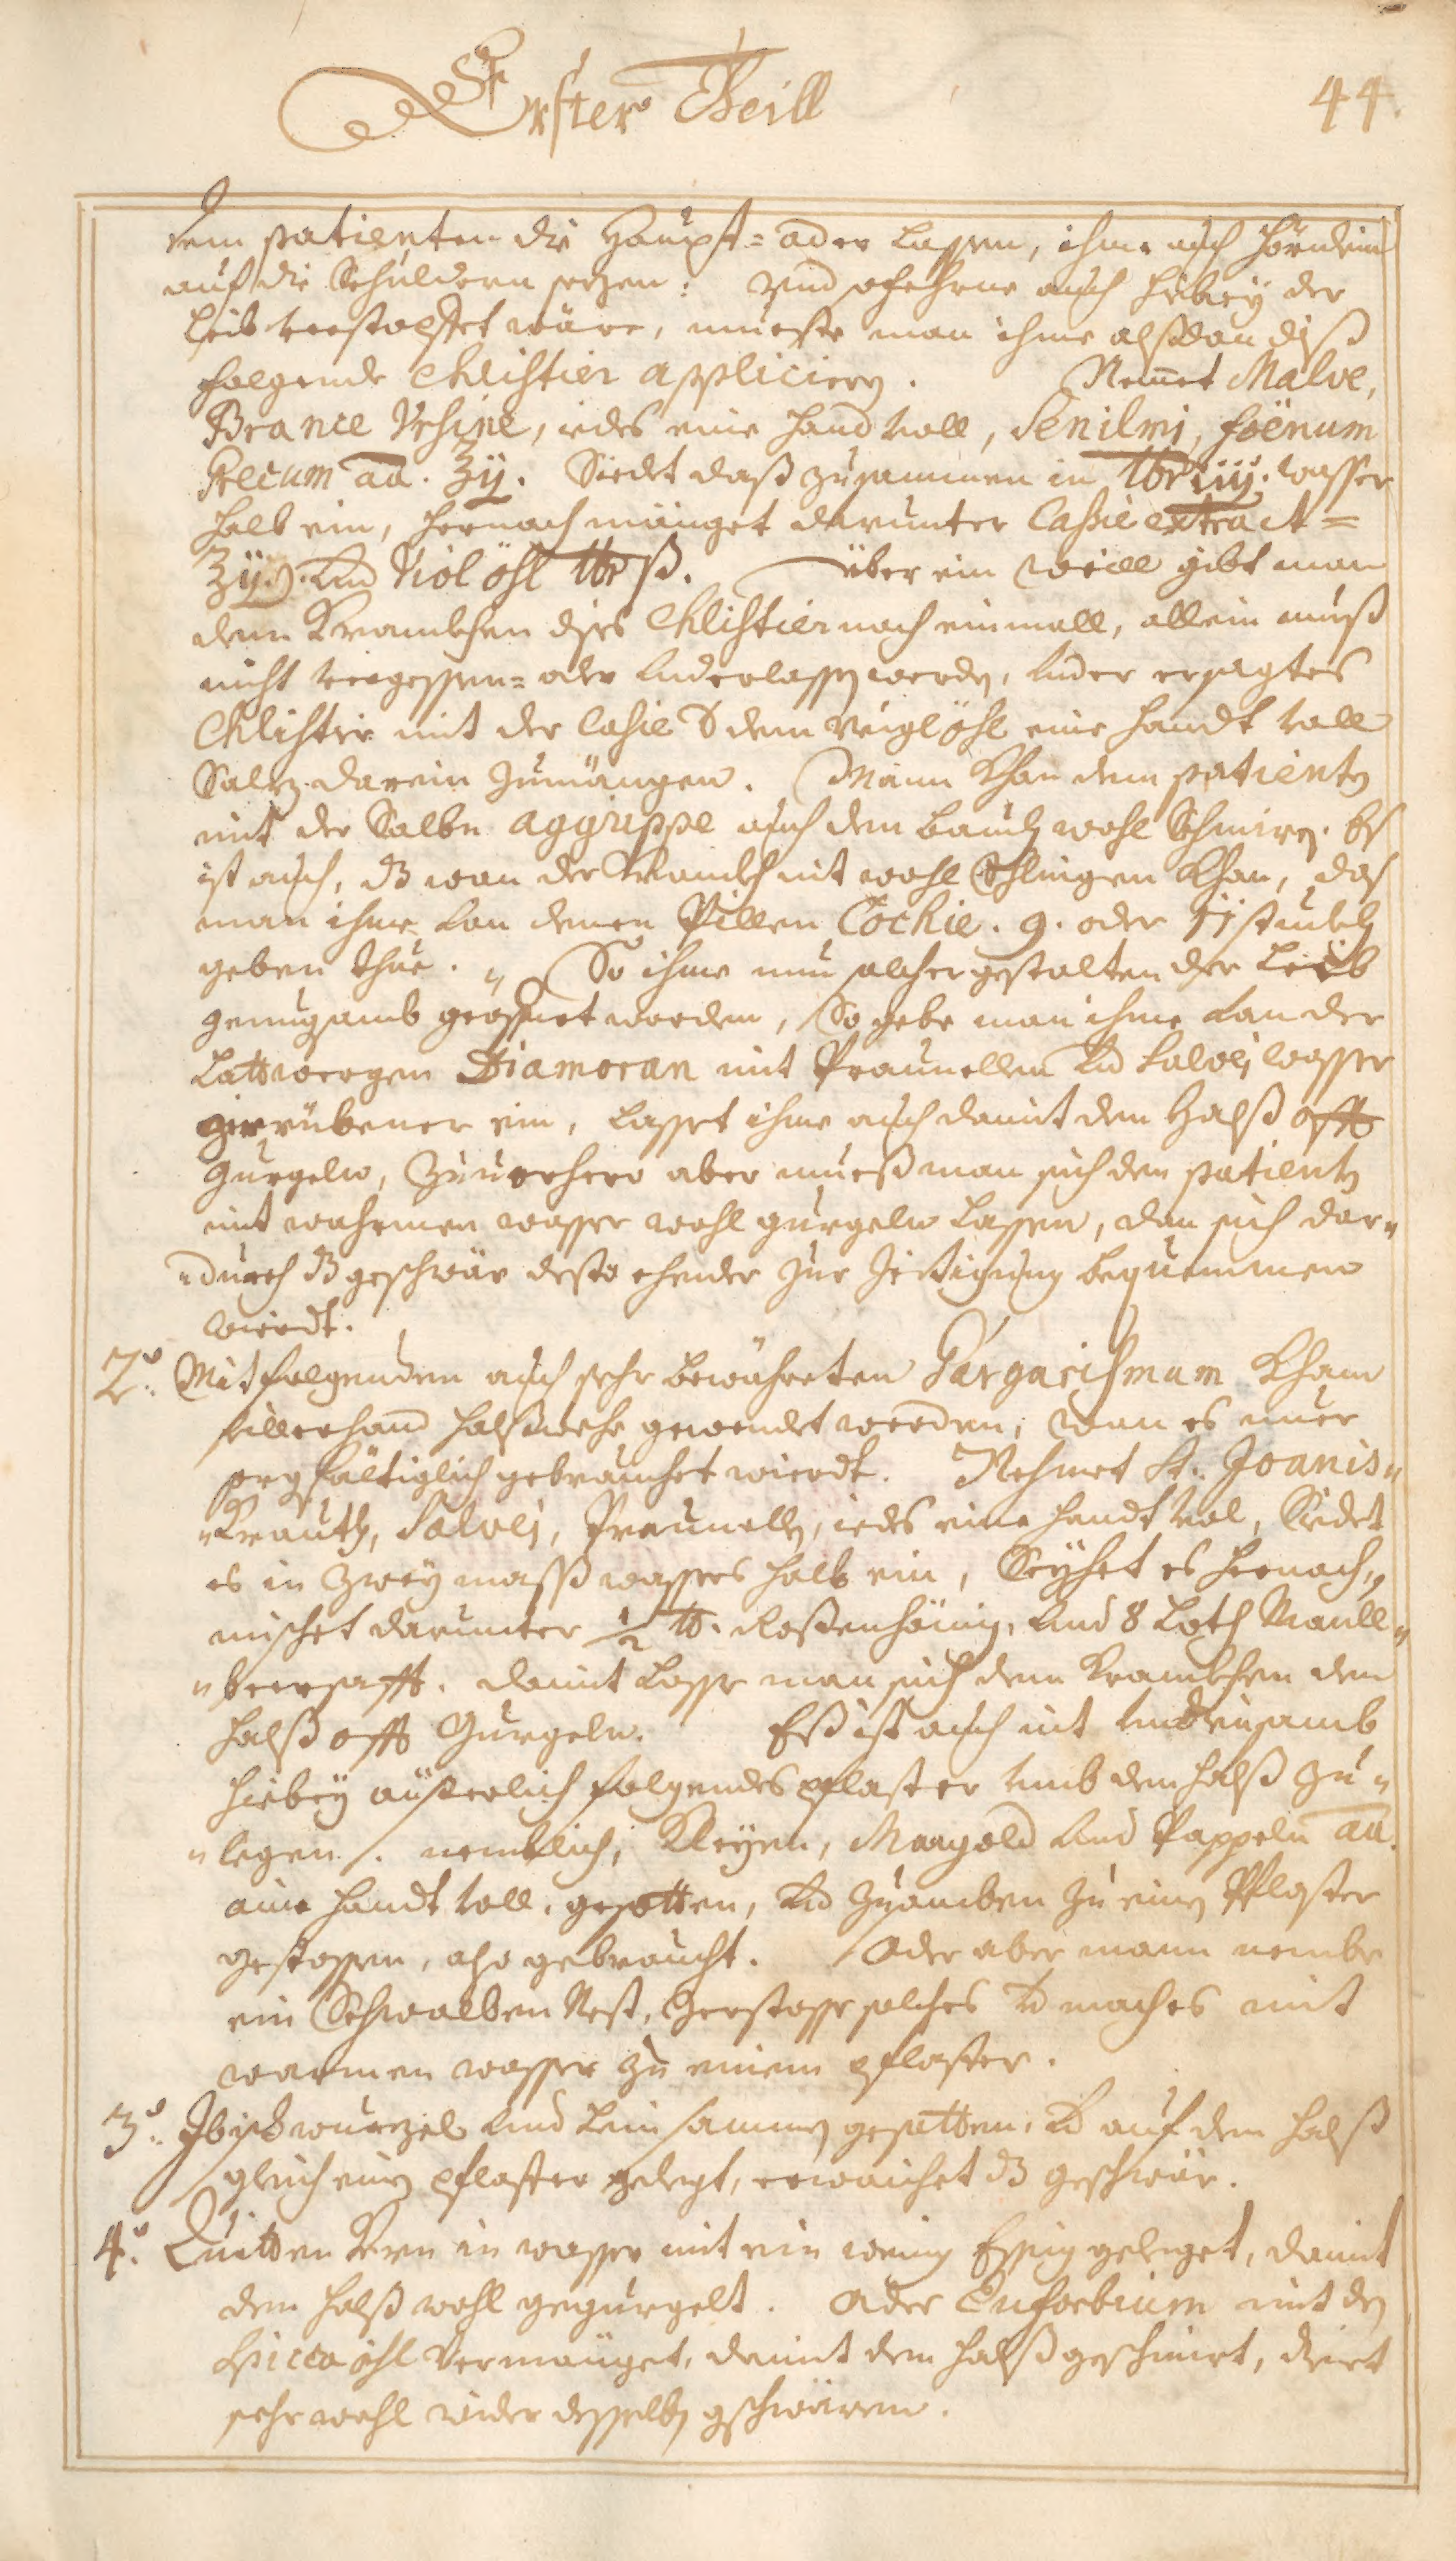 Erster Theill
44.
dem patienten die Haupt= ader lassen, ihme auch hörndein
auf die Schuldern sezen: Vnd ofehrne auch hiebeÿ der
Leib verstopfet wäre, mueste man ihme alßdan diß
folgende Chlistier appliciern. Nemmet Malve,
Brance Vrsine, iedes eine handt voll, Senilmj, foënum
Grecum aa. ʒij. Siedet daß zusammen in wasser
halb ein, hernach mänget darunter Cassie extract=
Vnd Viol öhl ß. über ein weill gibt man
dem Krankhen dises Chlistier noch einmall, allein muß
nicht vergessen= oder vnderlassen werden, vnder ersagtes
Chlistir mit der Casie dem Veiglöhl eine handt voll
Salz darein zumängen. Mann khan dem patienten
mit der Salbe aggrippe auch den bauch wohl Schmiren. Es
ist auch, dz wan der Krankh nit wohl Schlingen khan, das
man ihme von denen Pillen Cochie. 9. oder 11 stückh
geben thue. So ihme nun solcher gestalten der Leib
genuegsamb geöffnet worden, So gebe man ihme von der
Lattwergen Diamoran mit Praunellen Vnd Salvej wasser
zerrübener ein, lasset ihme auch damit den Halß offt
gurgeln, Zuuorhero aber mueß man sich den patienten
mit wahrmen wasser wohl gurgeln lassen, dan sich dar„
„durch dz geschwär desto ehender zur Zeitigung bequemmen
wierdt.
2.º Mit folgenden auch sehr bewährten Gargarismum khan
allerhand halßwehe gewendet werden, wan es nuer
sorgfältiglich gebrauchet wierdt. Nehmet St. Joanis„
„Krauth, Salvej, Praunellen, iedes eine handt vol, Siedet
es in zweÿ mass wassers halb ein, Seÿhet es hernach,
mischet darunter ½ ℔. Rosenhönig, vnd 8 Loth Maull„
„beersafft. damit lasse man sich dem Krankhen den
halß offt gurgeln. Eß ist auch nit vndiensamb
hiebeÿ äusserlich folgendes pflaster vmb den halß zu„
„legen. nemblich, Kleÿen, Mangold vnd Pappeln aa.
aine handt voll, gesotten, Vnd zusamben zu einen Pflaster
gestossen, also gebraucht. Oder aber mann nembe
ein Schwalben Nest, Zerstosse solches Vnd maches mit
warmen wasser zu einem pflaster.
3.º Ibischwurzel vnd Leinsammen gesotten, Vnd auf den halß
gleich einen pflaster gelegt, erwaichet dz geschwär.
4.º Quitten Kern in wasser mit ein wenig Essig geleget, damit
den halß wohl gegurgelt. Oder Euforbium mit den
Spicca öhl vermänget, damit den halß geschmiert, dient
sehr wohl wider desselben gschwären.